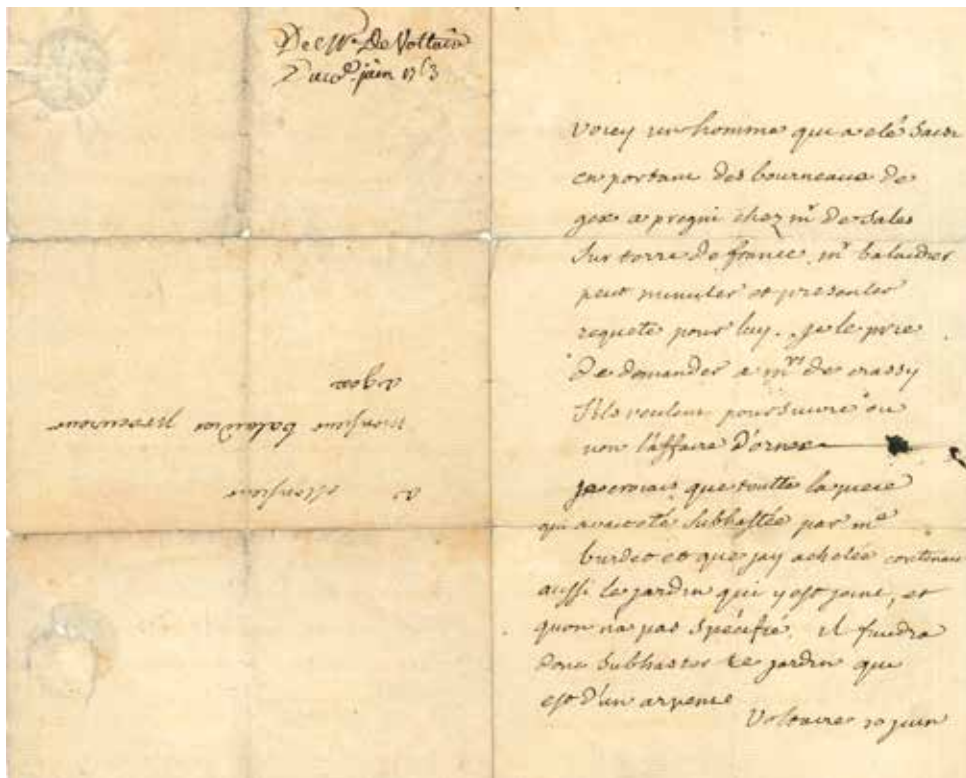 De Mr. De Voltaire
Du 10e. juin 1763
a Monsieur
monsieur balaidier procureur
a gex
voicy un homme qui a eté saisi
en portant des bourneaux de
gex a pregni chez mr de sales
sur terre de france. mr balaidier
peut minuter et presenter
requete pour luy. je le prie
de demander a mrs de crassy
s'ils veulent poursuivre ou
non l'affaire d'ornex
je croiais que toutte la piece
qui avait eté subhastée par me
burdet et que jay achetée contenait
aussi le jardin qui y est joint, et
quon n'a pas spécifié. il faudra
donc subhaster ce jardin qui
est d'un arpent
Voltaire 10 juin